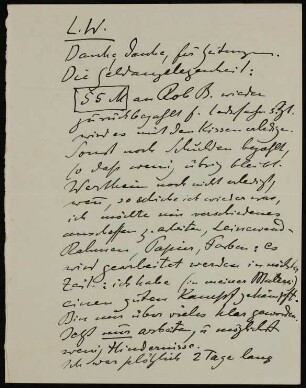 L. W.
Danke, danke, für Zeitungen.
Die Geldangelegenheit:
55 M an Rob B. wieder
zurückbezahlt f.
wird es mit den Kissen erledigen.
Sonst noch Schulden bezahlt,
so dass wenig übrig bleibt.
Wertheim noch nicht erledigt,
wenn, so schicke ich wieder was,
ich möchte mir verschiedenes
anschaffen z. arbeiten, Leinwand-
Rahmen, Papier, Farben: es
wird gearbeitet werden in nächster
Zeit: ich habe (in meiner Malerei)
einen guten Kampf gekämpft.
Bin mir über vieles klar geworden.
Jetzt nur arbeiten, u möglichst
wenig Hindernisse.
Ich war plötzlich 2 Tage lang